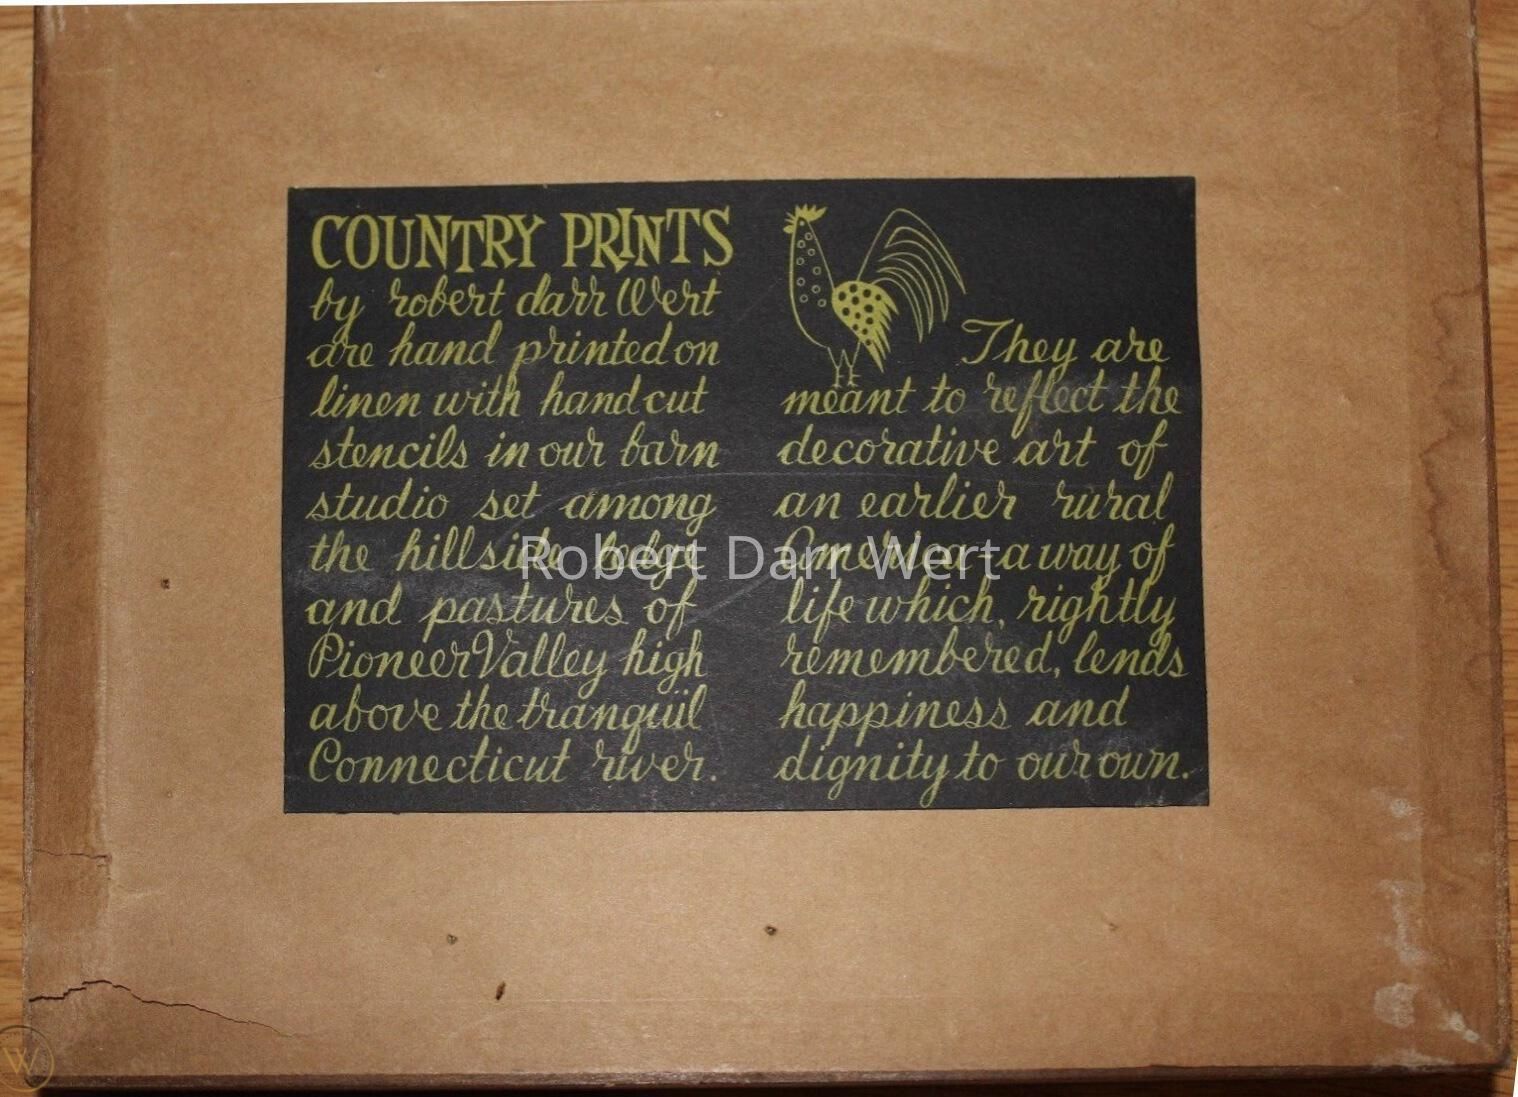 COUNTRY PRINTS
by robert darr Wert
are hand printed on
linen with hand cut
stencils in our barn
studio set among
the hillside ledge
and pastures of
Pioneer Valley high
above the tranquil
Connecticut river.
They are
meant to reflect the
decorative art of
an earlier rural
America - a way of
life which, rightly
remembered, lends
happiness and
dignity to our own.
Robert Darr Wert
W